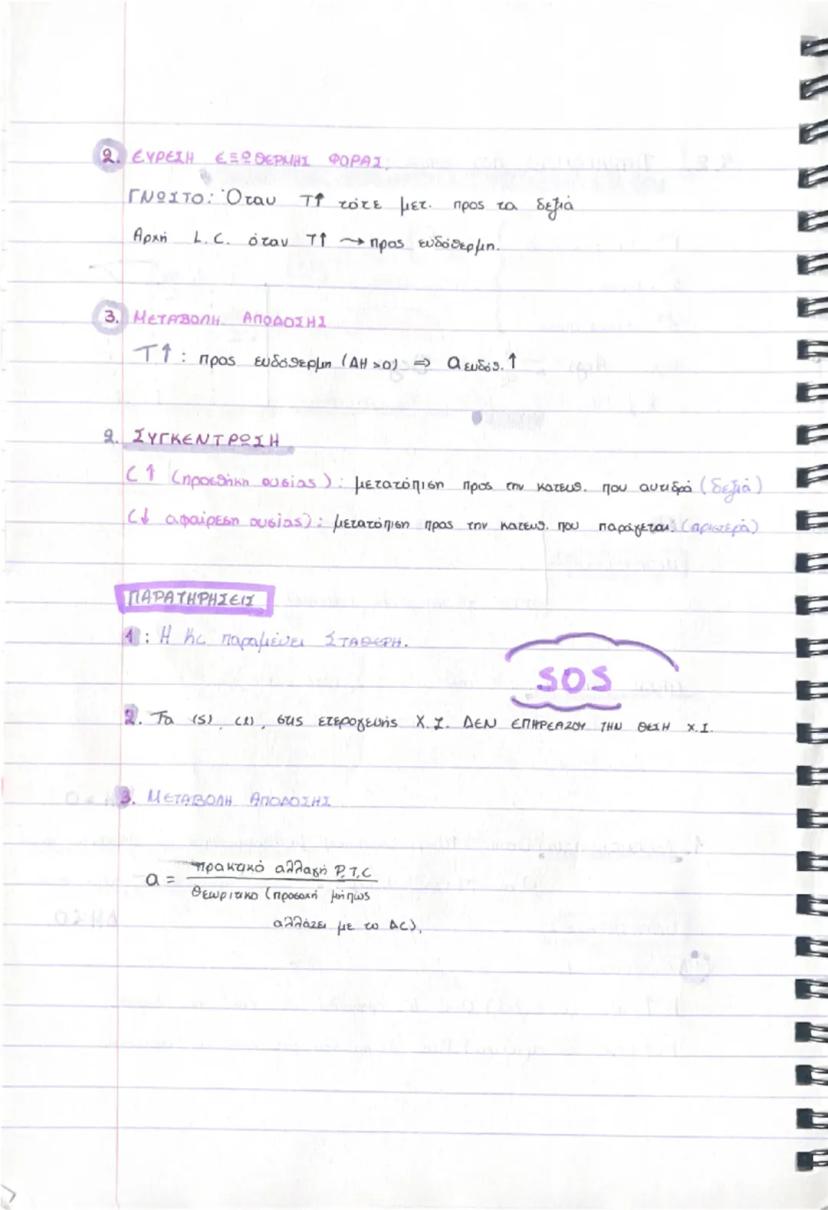 2. ΕΥΡΕΣΗ ΕΞΩΘΕΡΜΗΣ ΦΟΡΑΣ.
ΓΝΩΣΤΟ: Όταν Τ↑ τότε μετ. προς τα δεξιά
Αρχή L.C. όταν Τ↑ → προς ενδόθερμη.
3. ΜΕΤΑΒΟΛΗ ΑΠΟΔΟΣΗΣ
Τ↑: προς ενδόθερμη (ΔΗ>0) ⇒ α ενδόθ.↑
2. ΣΥΓΚΕΝΤΡΩΣΗ
C↑ (προσθήκη ουσίας): μετατόπιση προς την κατευθ. που αντιδρά (δεξιά)
C↓ αφαίρεση ουσίας): μετατόπιση προς την κατευθ. που παράγεται (αριστερά)
ΠΑΡΑΤΗΡΗΣΕΙΣ
1: Η Kc παραμένει ΣΤΑΘΕΡΗ.
SOS
2. Τα (s), (l), στις ετερογενής Χ.Ι. ΔΕΝ ΕΠΗΡΕΑΖΟΥ ΤΗΝ ΘΕΣΗ Χ.Ι.
3. ΜΕΤΑΒΟΛΗ ΑΠΟΔΟΣΗΣ
α = πρακτικό αλλαγή P,T,C
θεωρητικο (προσοχή μήπως
αλλάζει με το ΔC).